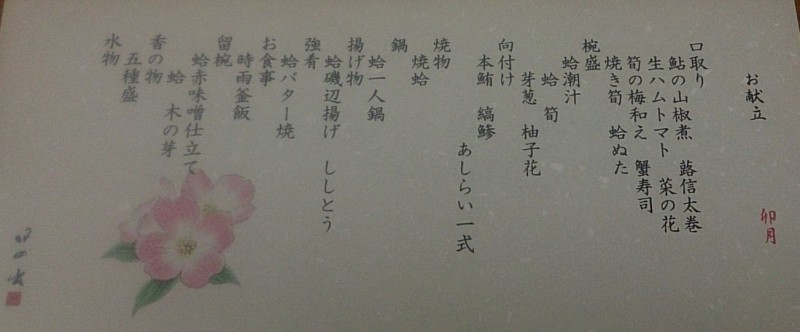 お献立
卯月
口取り
鮎の山椒煮　蕗信太巻
生ハムトマト　菜の花
筍の梅和え　蟹寿司
焼き筍　蛤ぬた
椀盛
蛤潮汁
蛤　筍
芽葱　柚子花
向付け
本鮪　縞鯵
あしらい一式
焼物
焼蛤
鍋
蛤一人鍋
揚げ物
蛤磯辺揚げ　ししとう
強肴
蛤バター焼
お食事
時雨釜飯
留椀
蛤赤味噌仕立て
蛤　木の芽
香の物
五種盛
水物